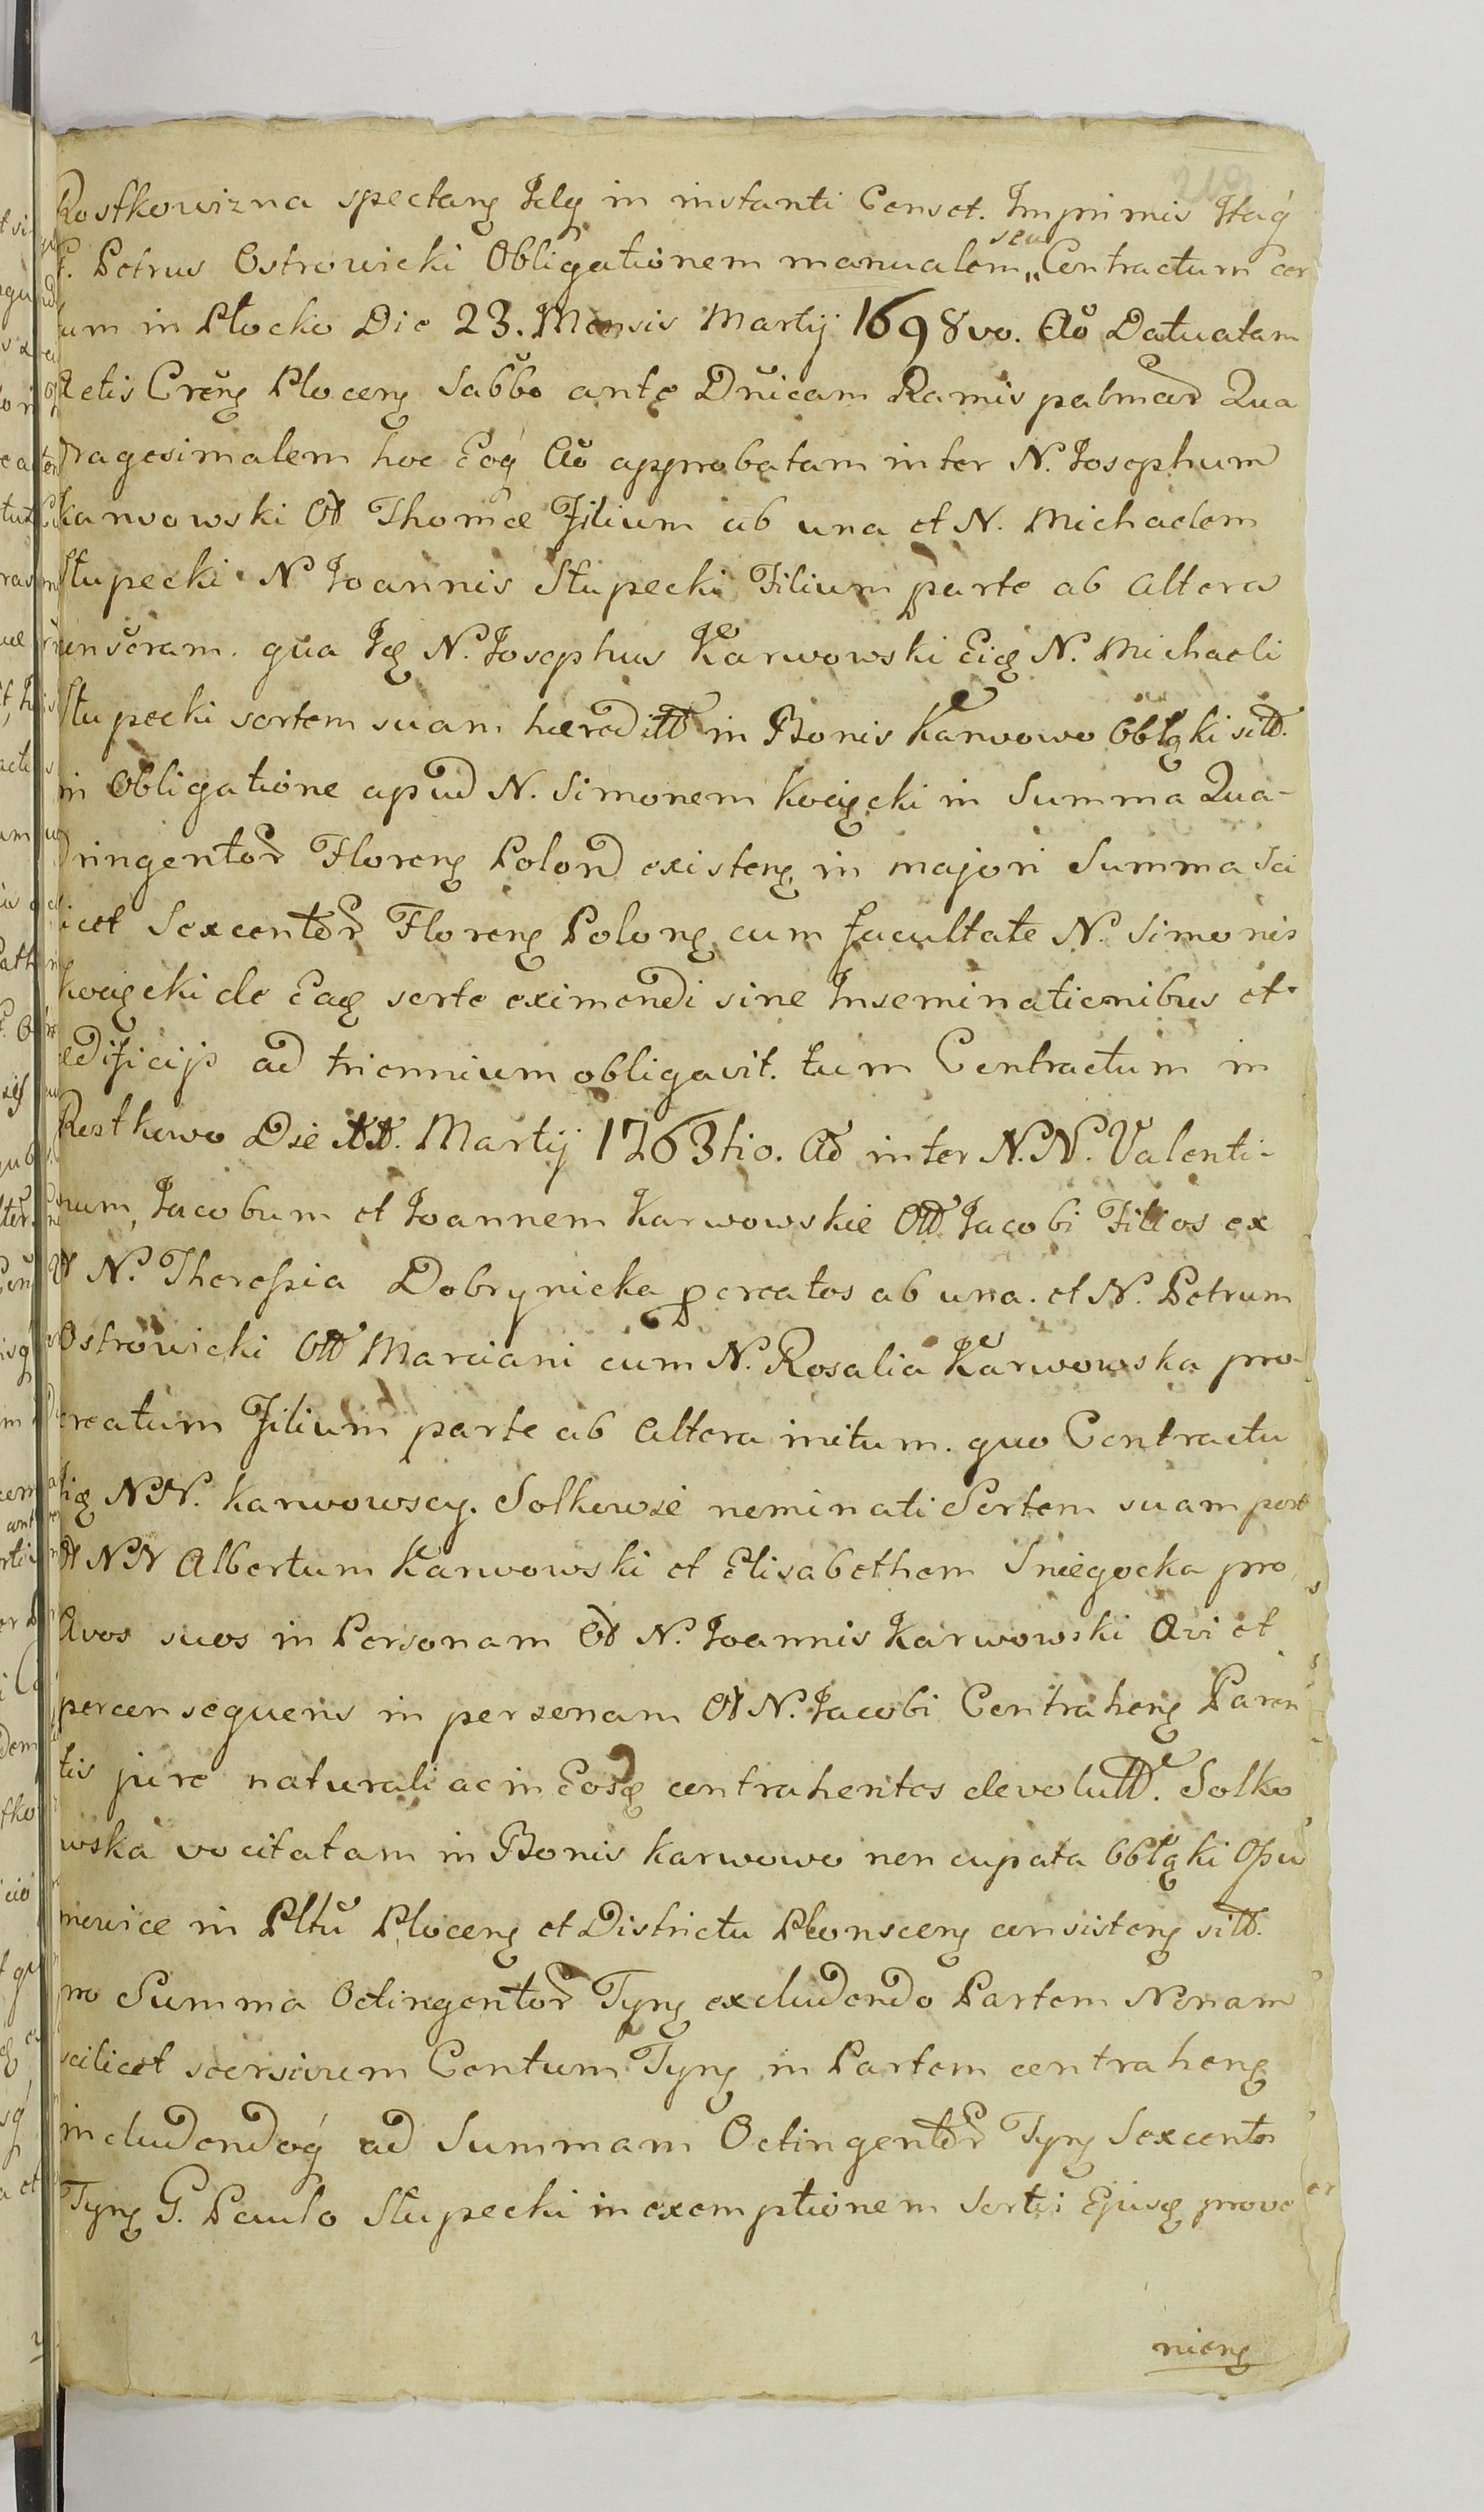 Rostkowizna spectang Idq in instanti Censet. Imprimis Itaq́
F. Petrus Ostrowicki Obligationem manualem seu Contractum cer
tum in Płocko Die 23. Mensis Martij 1698vo. Aõ Datuatam
Actis Crens Plocens Sabbo ante Dnicam Ramis palmar Qua
dragesimalem hoc Eoq́ Aõ approbatam inter N. Josephum
Karwowski Ol Thomæ Filium ab una et N. Michaelem
Słupecki N Joannis Słupecki Filium parte ab altera
qua N. Josephus Karwowski N. Michaeli
Słupecki sortem suam hæreditt in Bonis Karwowo Obłąki sitt.
in Obligatione apud N. Simonem in Summa Qua-
dringentor Florens Polon existens in majori Summa Sci
licet Sexcentor Florens Polons cum facultate N. Simonis
de sorte eximendi sine Inseminationibus et
ædificijs ad triennium obligavit. tum Contractum in
Rostkowo Die Martij 1763tio. Aõ inter N.N. Valenti-
num, Jacobum et Joannem Karwowskie Ott Jacobi Filios ex
Ol N. Theressia Dobrynicka pcreatos ab una. et N. Petrum
Ostrowicki Ott Marciani cum N. Rosalia Karwowska pro-
creatum Filium parte ab altera initum. quo Contractu
NN. Karwowscy. Solkowie nominati Sortem suam post
Ol NN Albertum Karwowski et Elisabetham Sniegocka pro
Avos suos in Personam Ol N. Joannis Karwowski Avi et
perconsequens in personam Ol N. Jacobi Contrahens Paren
tis jure naturali ac in Eosd contrahentes devolutt. Solko
wska vocitatam in Bonis Karwowo noncupata Obłąki
in Pltũ Plocens et Districtu Plonscens consistens sitt.
pro Summa Octingentor Tyns excludendo Partem Nonam
scilicet seorsivum Centum Tyns in Partem contrahens
includendoq́ ad Summam Octingentor Tyns Sexcentos
Tyns G. Paulo Słupecki in exemptionem Sortis Ejusd prove
niens